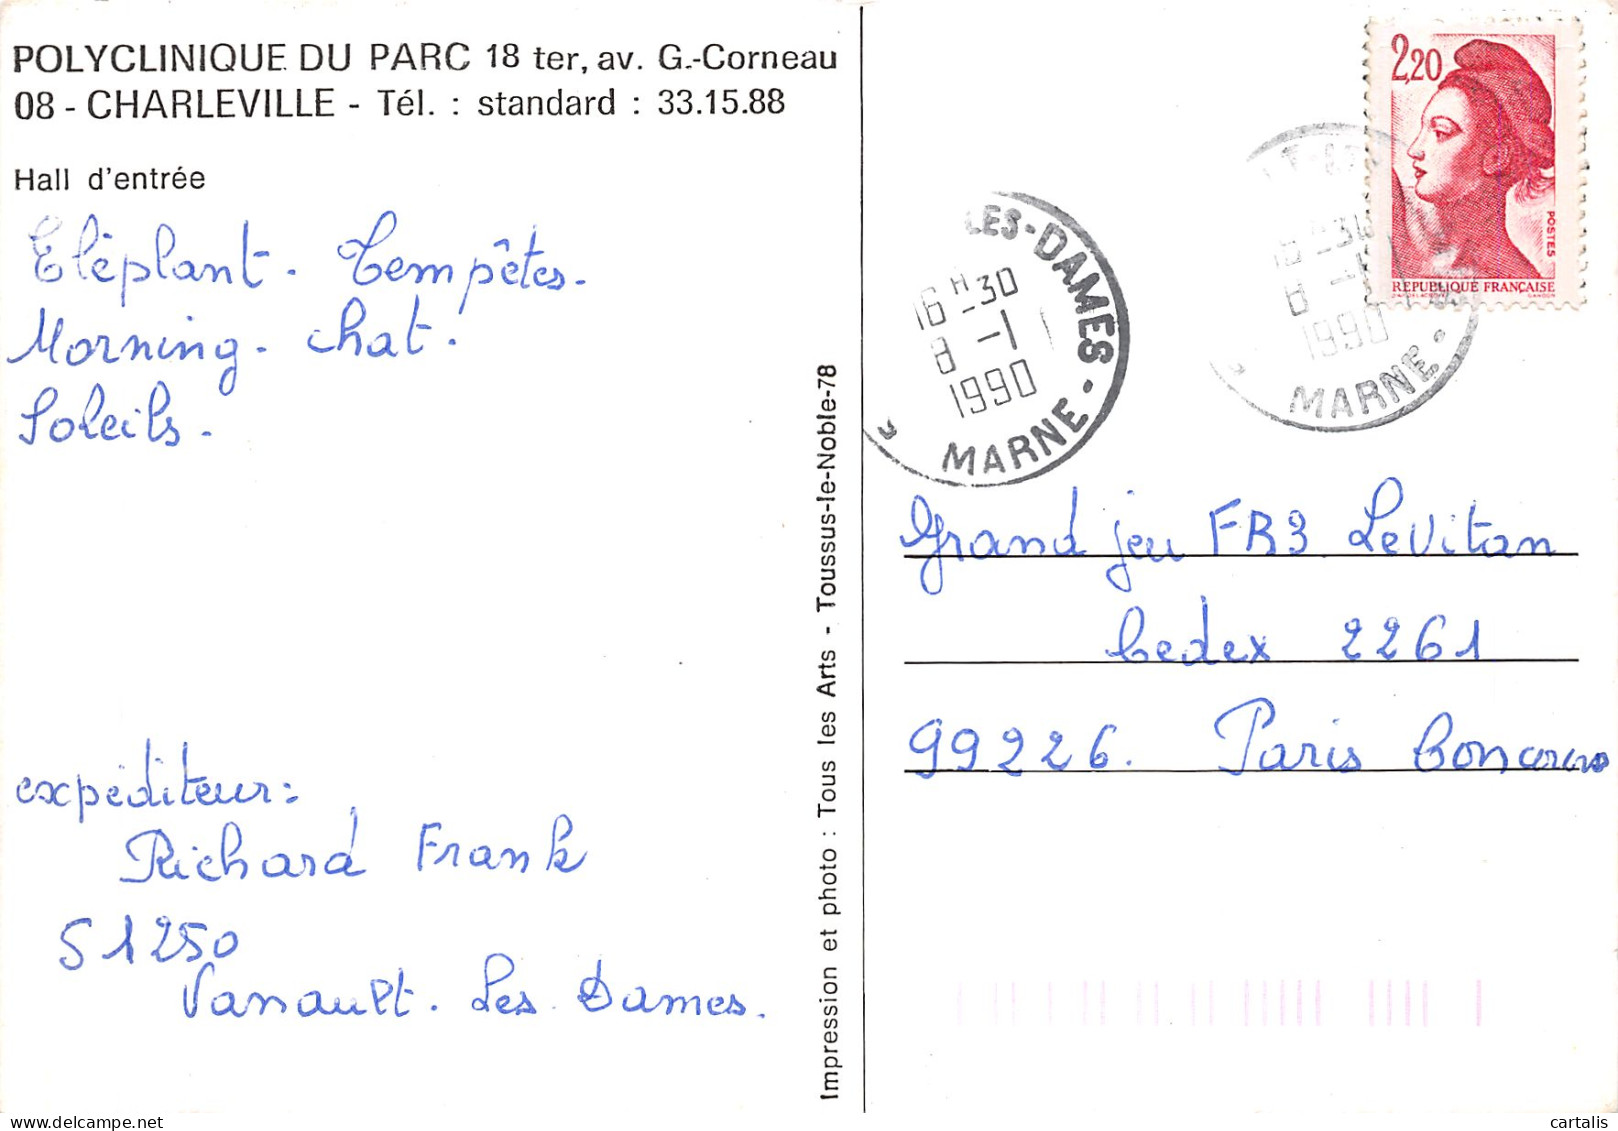 POLYCLINIQUE DU PARC 18 ter, av. G.-Corneau
08 - CHARLEVILLE - Tél. : standard : 33.15.88
Hall d'entrée
Eléplant. Tempêtes.
Morning. chat.
Soleils.
expéditeur:
Richard Frank
51250
Vanault. Les Dames.
Impression et photo : Tous les Arts - Toussus-le-Noble-78
LES-DAMES
16H-30
8 -1
1990
MARNE
2,20
POSTES
REPUBLIQUE FRANÇAISE
1990
MARNE
Grand jeu FR3 LeVitan
Cedex 2261
99226. Paris Concours
cartalis